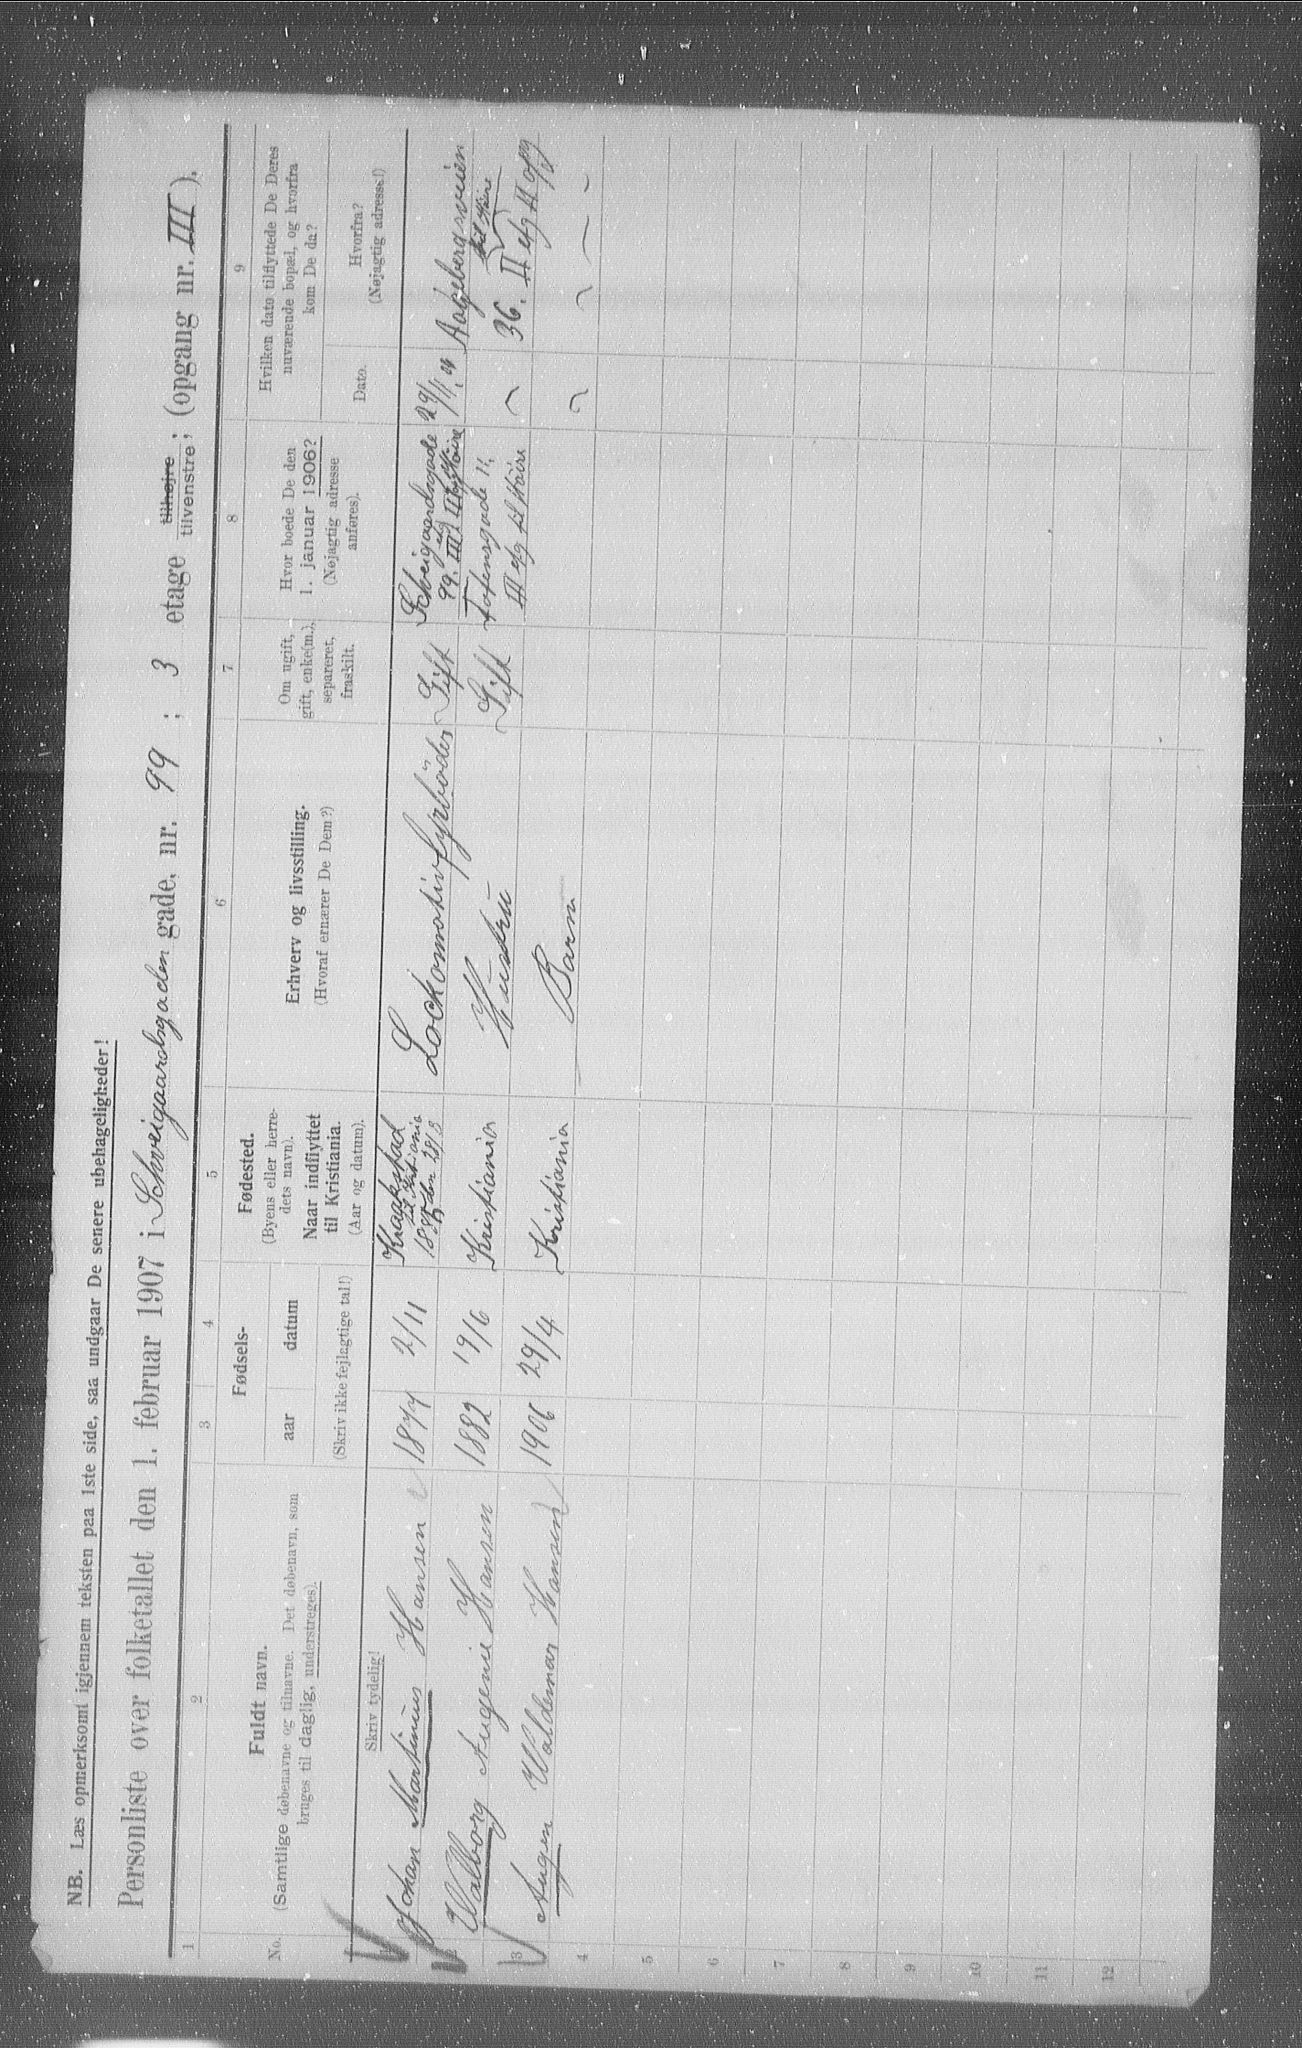 NB. Læs opmerksomt igjennem teksten paa 1ste side, saa undgaar De senere ubehageligheder!
Personliste over folketallet den 1. februar 1907 i Schveigaardsgaden gade, nr. 99 ; 3 etage tilhøjre tilvenstre; (opgang nr. III ).
1 2 3 4 5 6 7 8 9
No.
Fuldt navn.
(Samtlige døbenavne og tilnavne. Det døbenavn, som
bruges til daglig, understreges).
Fødsels-
aar datum
(Skriv ikke fejlagtige tal!)
Fødested.
(Byens eller herre-
dets navn).
Naar indflyttet
til Kristiania.
(Aar og datum).
Erhverv og livsstilling.
(Hvoraf ernærer De Dem?)
Om ugift,
gift, enke(m.),
separeret,
fraskilt.
Hvor boede De den
1. januar 1906?
(Nøjagtig adresse
anføres).
Hvilken dato tilflyttede De Deres
nuværende bopæl, og hvorfra
kom De da?
Dato.
Hvorfra?
(Nøjagtig adresse!)
Skriv tydelig!
Johan Martinus Hansen 1877 2/11 Kraakstad
til Kristiania
den 28/3
Lockomotivfyrbøder Gift Schveigaardsgade
99. III
29/11
Aagebergveien
2 Walborg Augenie Hansen 1882 19/6 Kristiania Hustru Gift Tofensgade 11
III etg til Høire
36. II etg
3 Augen Waldemar Hansen 1906 29/4 Kristiania Barn
4
5
6
7
8
9
10
11
12